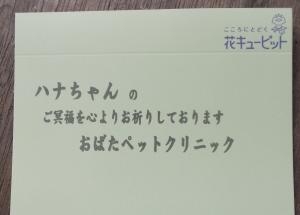 こころにとどく
花キューピット
ハナちゃん の
ご冥福を心よりお祈りしております
おばたペットクリニック